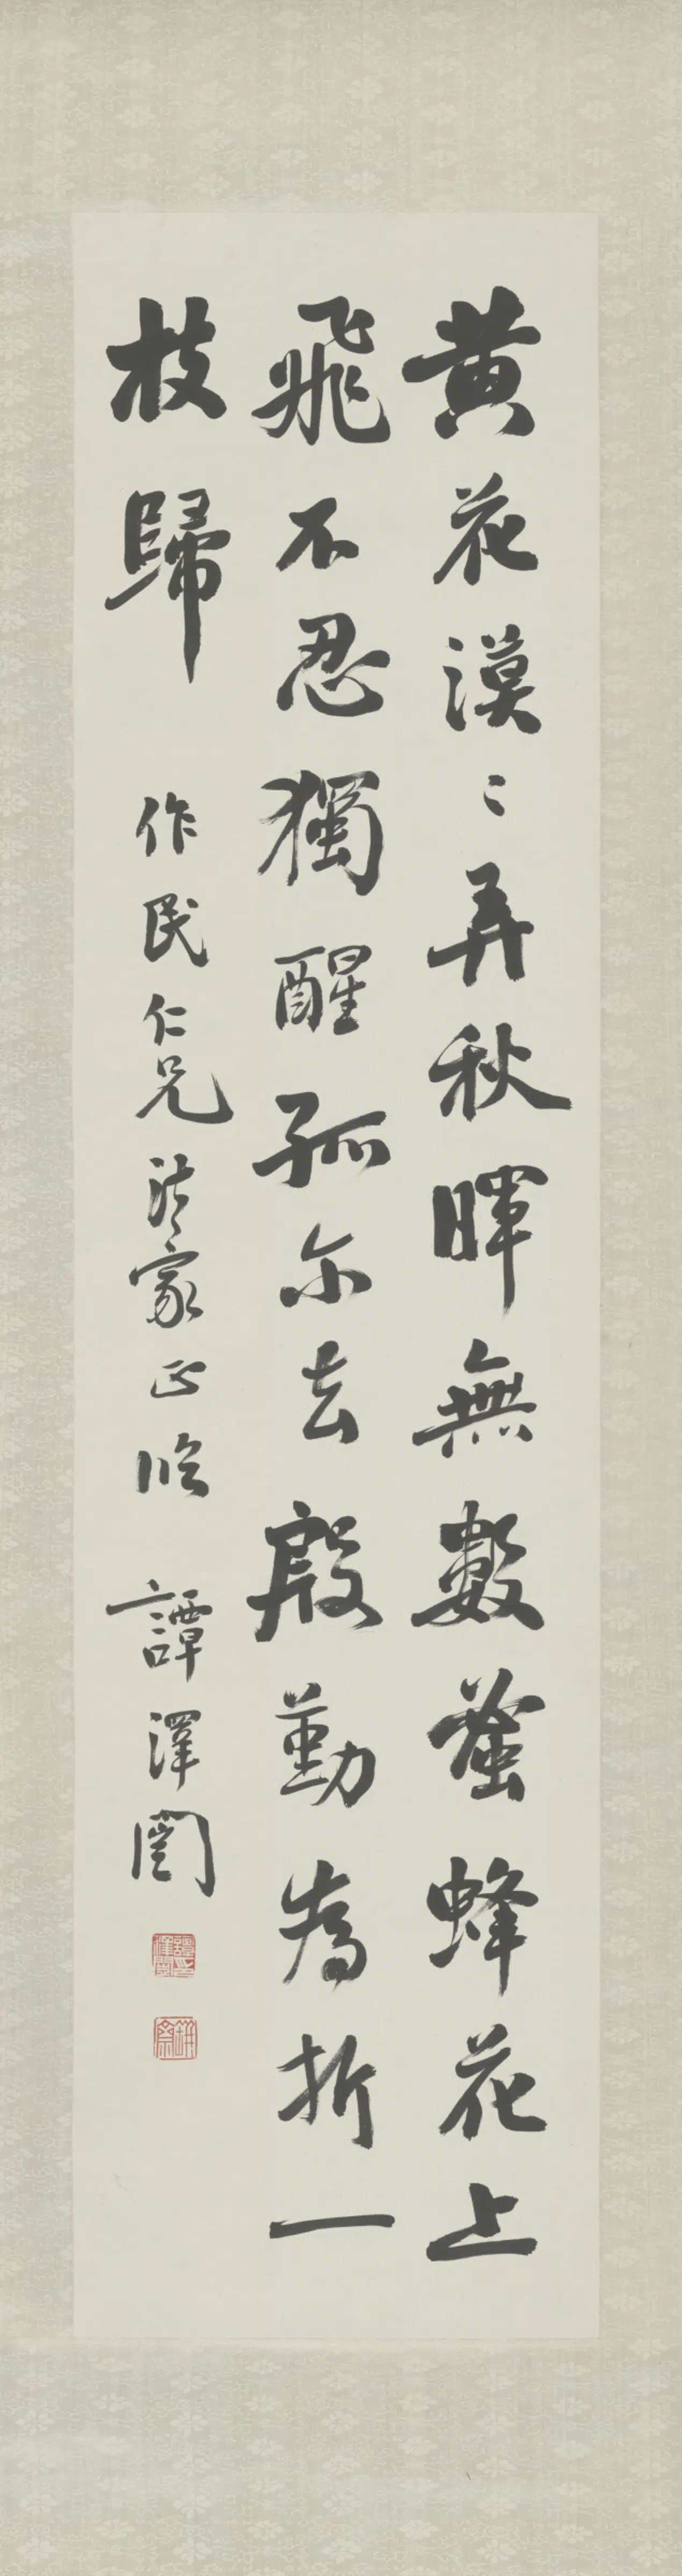 黄花漠〻弄秋暉無數蜜蜂花上
飛不忍獨醒孤尔去殷勤為折一
枝歸 作民仁兄法家正臨 譚澤闓
缾齋